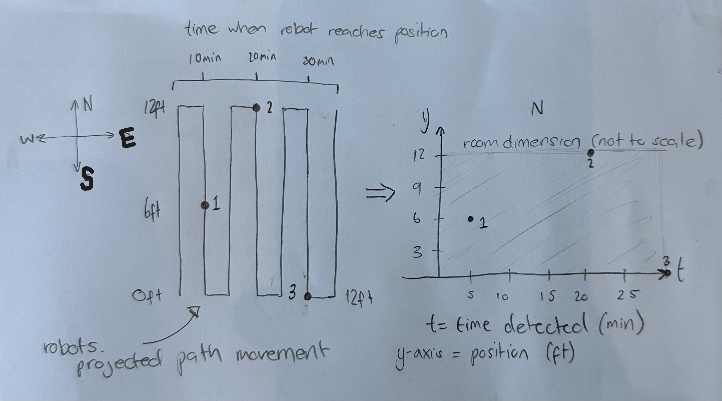 time when robot reaches position
10min 20min 30min
N
W E
S
12ft
2
6ft
1
0ft
3
12ft
robots.
projected path movement
N
y
room dimension (not to scale)
12
2
9
6
1
3
3
t
5 10 15 20 25
t= time detected (min)
y-axis = position (ft)